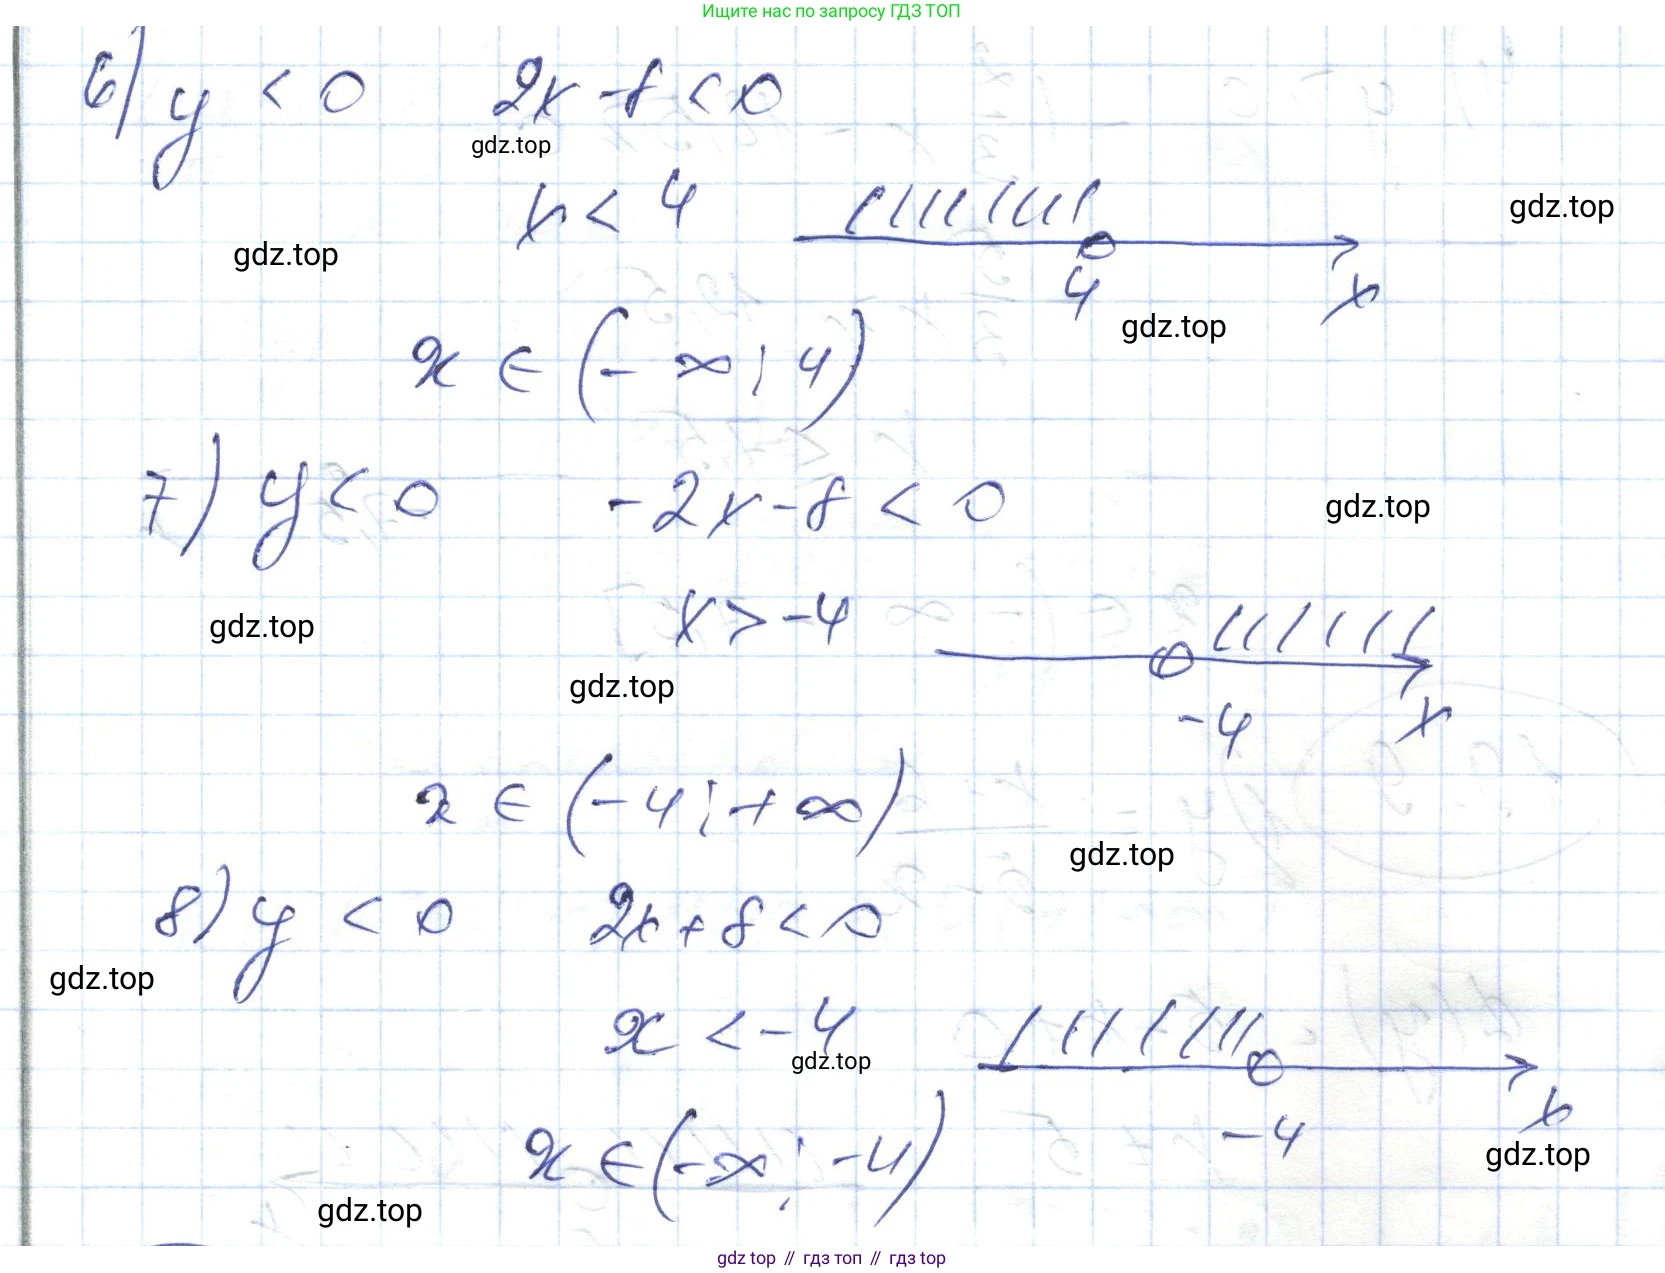 Ищите нас по запросу ГДЗ ТОП
6) y < 0 2x - 8 < 0
gdz.top
x < 4
gdz.top
gdz.top
4 x
gdz.top
x ∈ (-∞; 4)
7) y < 0 -2x - 8 < 0
gdz.top
x > -4
gdz.top
gdz.top
-4 x
x ∈ (-4; +∞)
gdz.top
8) y < 0 2x + 8 < 0
gdz.top
x < -4
gdz.top
-4 x
x ∈ (-∞; -4)
gdz.top
gdz.top
gdz top // гдз топ // гдз top